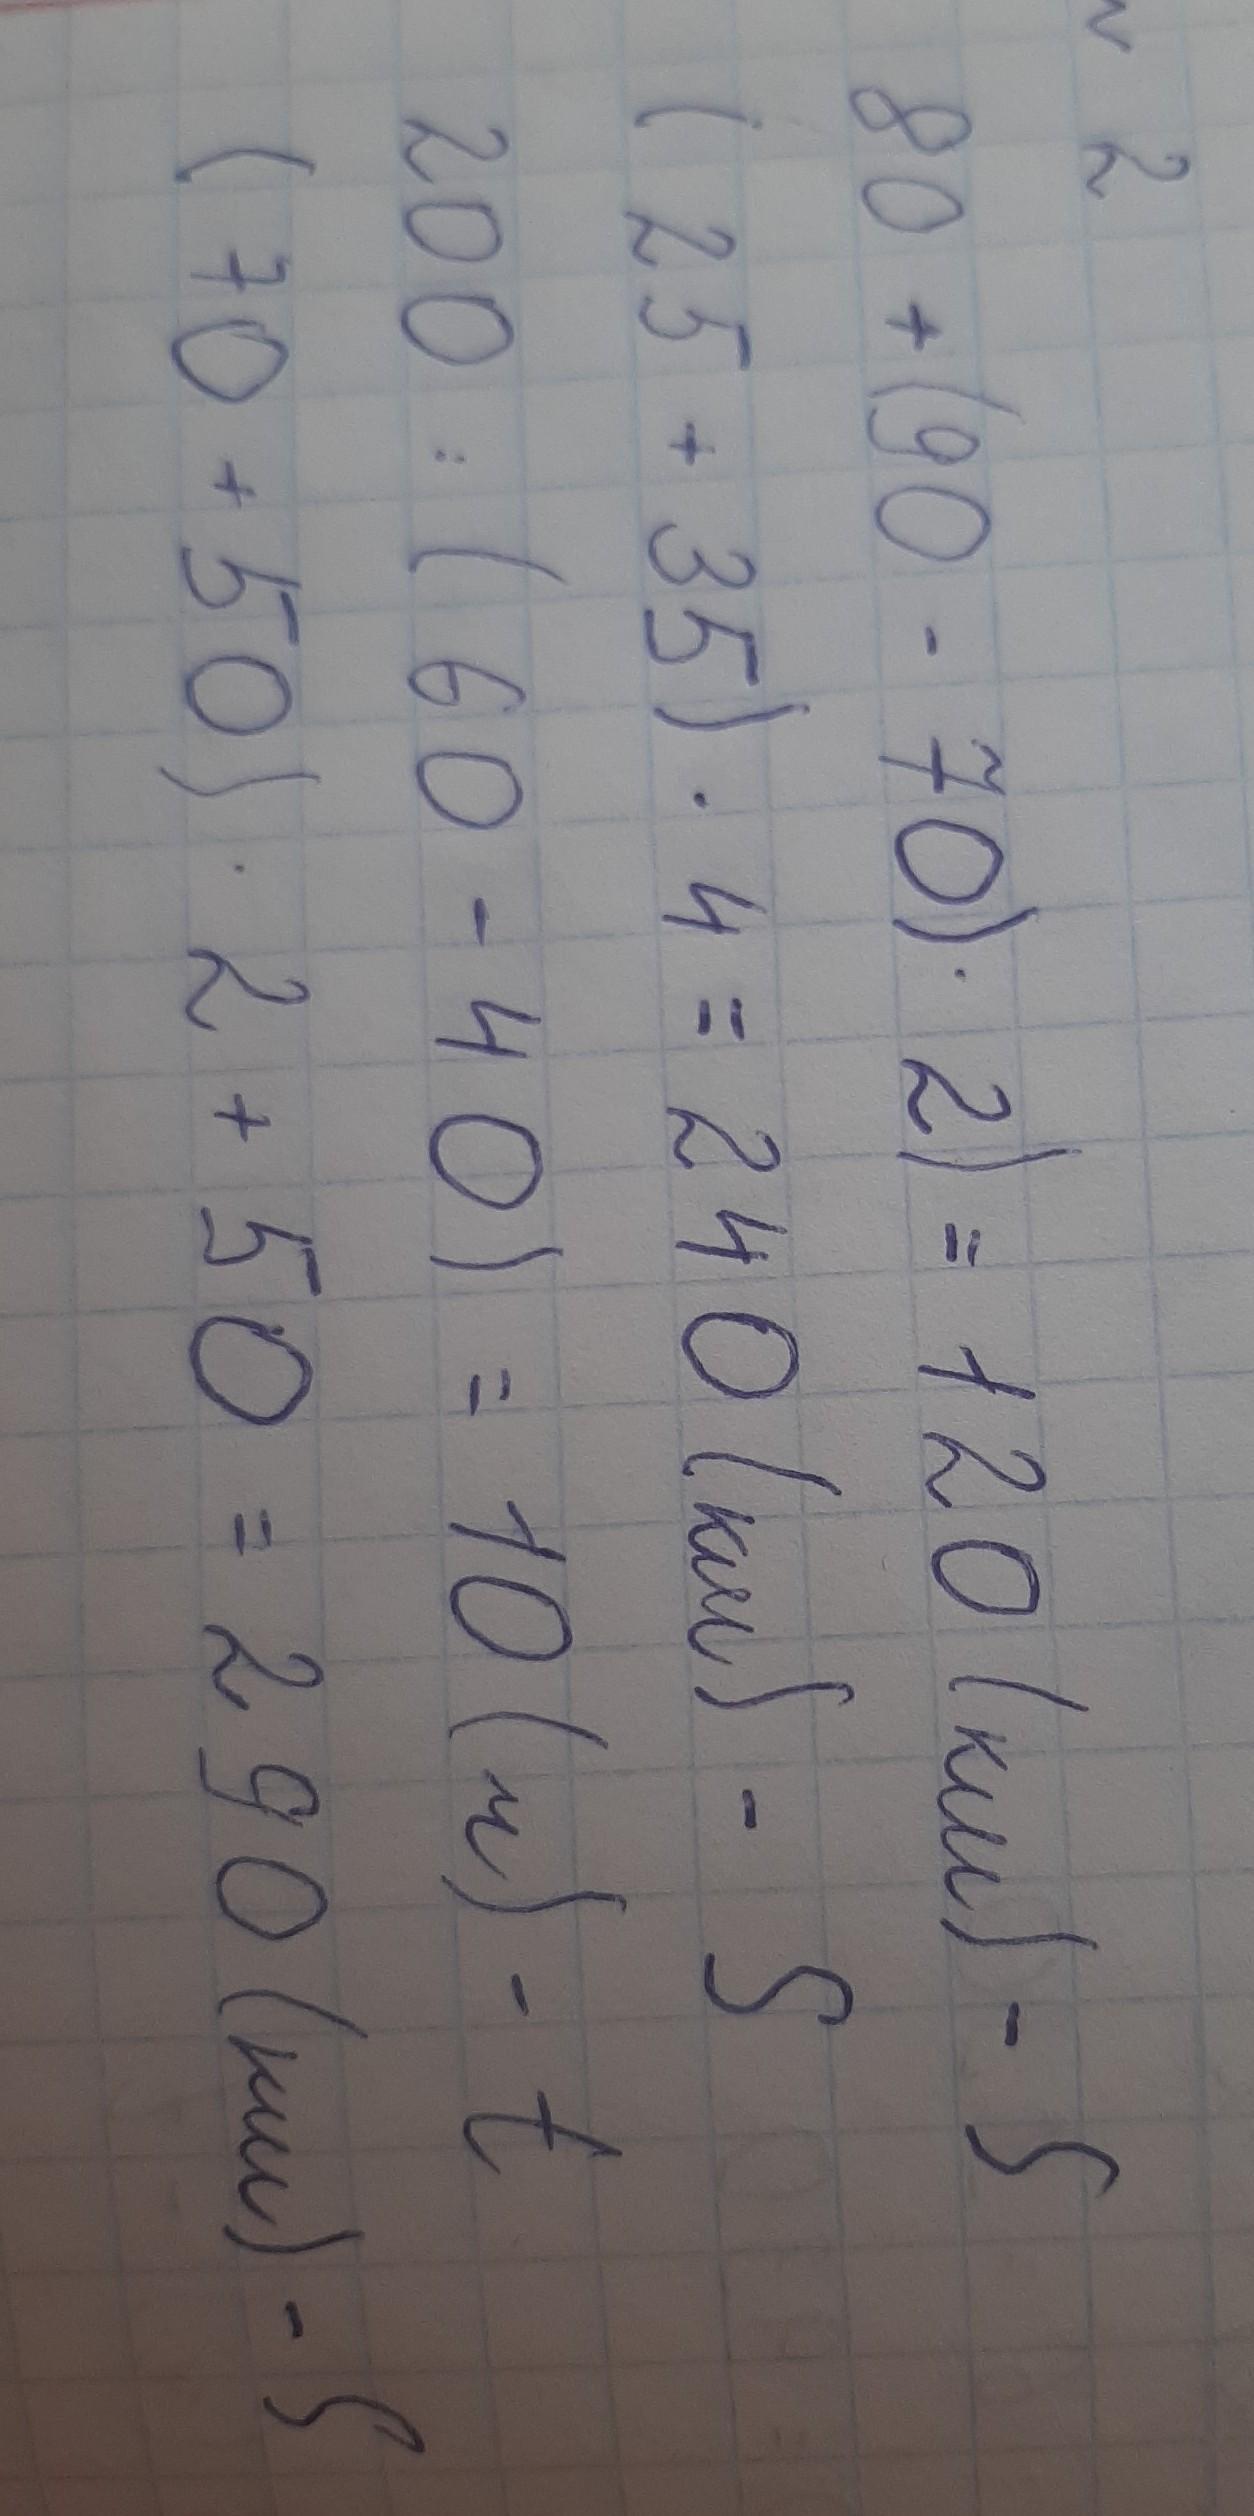 № 2
80 + (90 - 70) · 2) = 120 (км) - S
(25 + 35) · 4 = 240 (км) - S
200 : (60 - 40) = 10 (ч) - t
(70 + 50) · 2 + 50 = 290 (км) - S